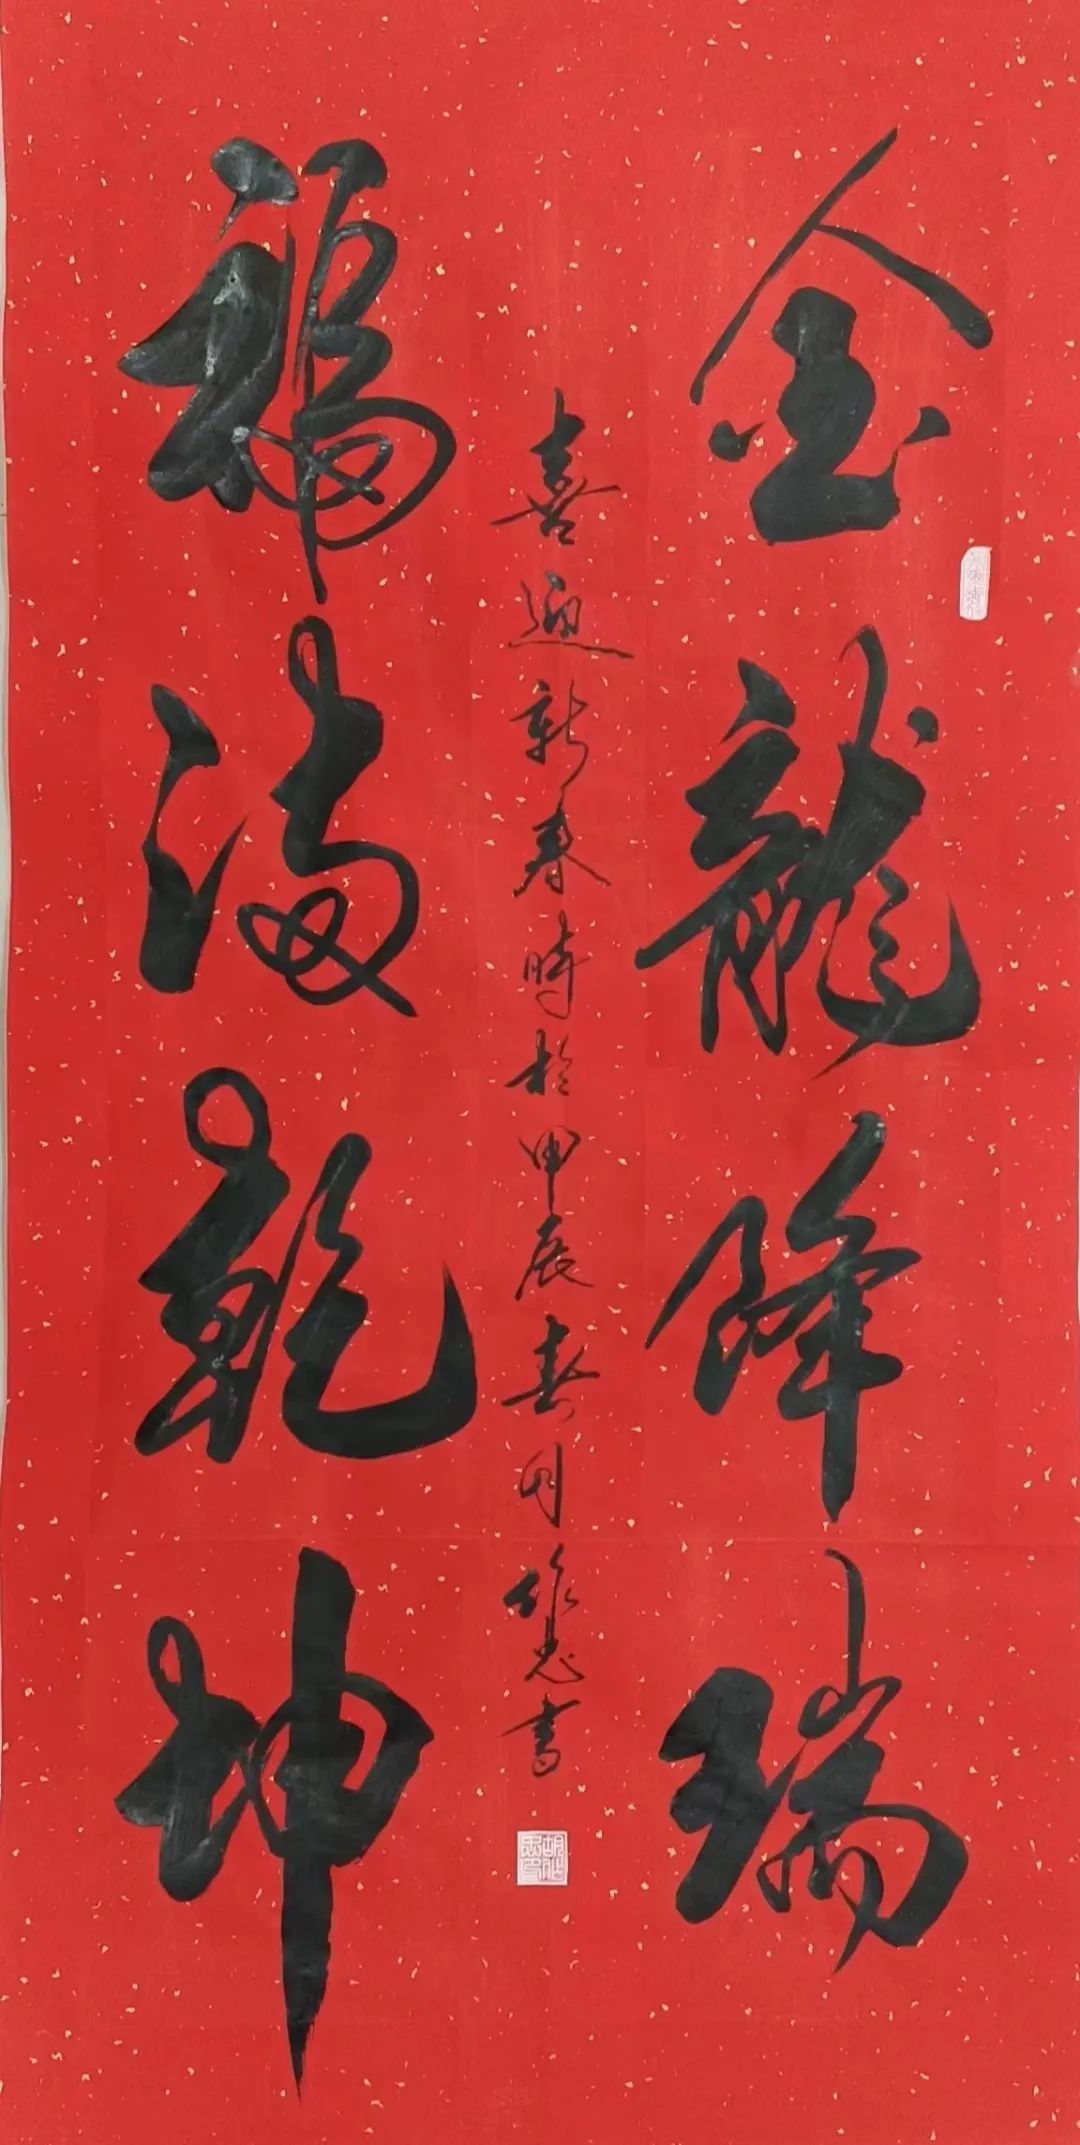 金龍降瑞
喜迎新春時於甲辰春月作忠書
福滿乾坤